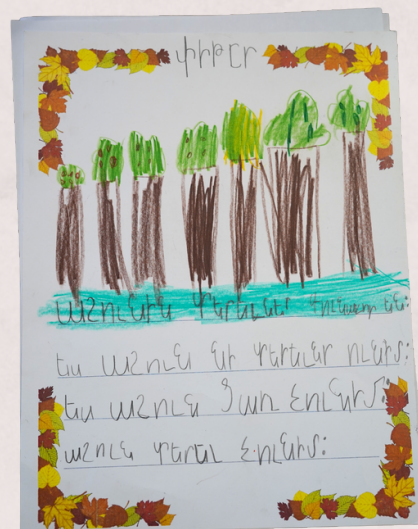 փիթըր
աշունին տերեւներ գունաւոր են:
ես աշուն նի տերեւնր ունիմ:
ես աշուն ծառ չունիմ:
աշուն տերեւ չունիմ: